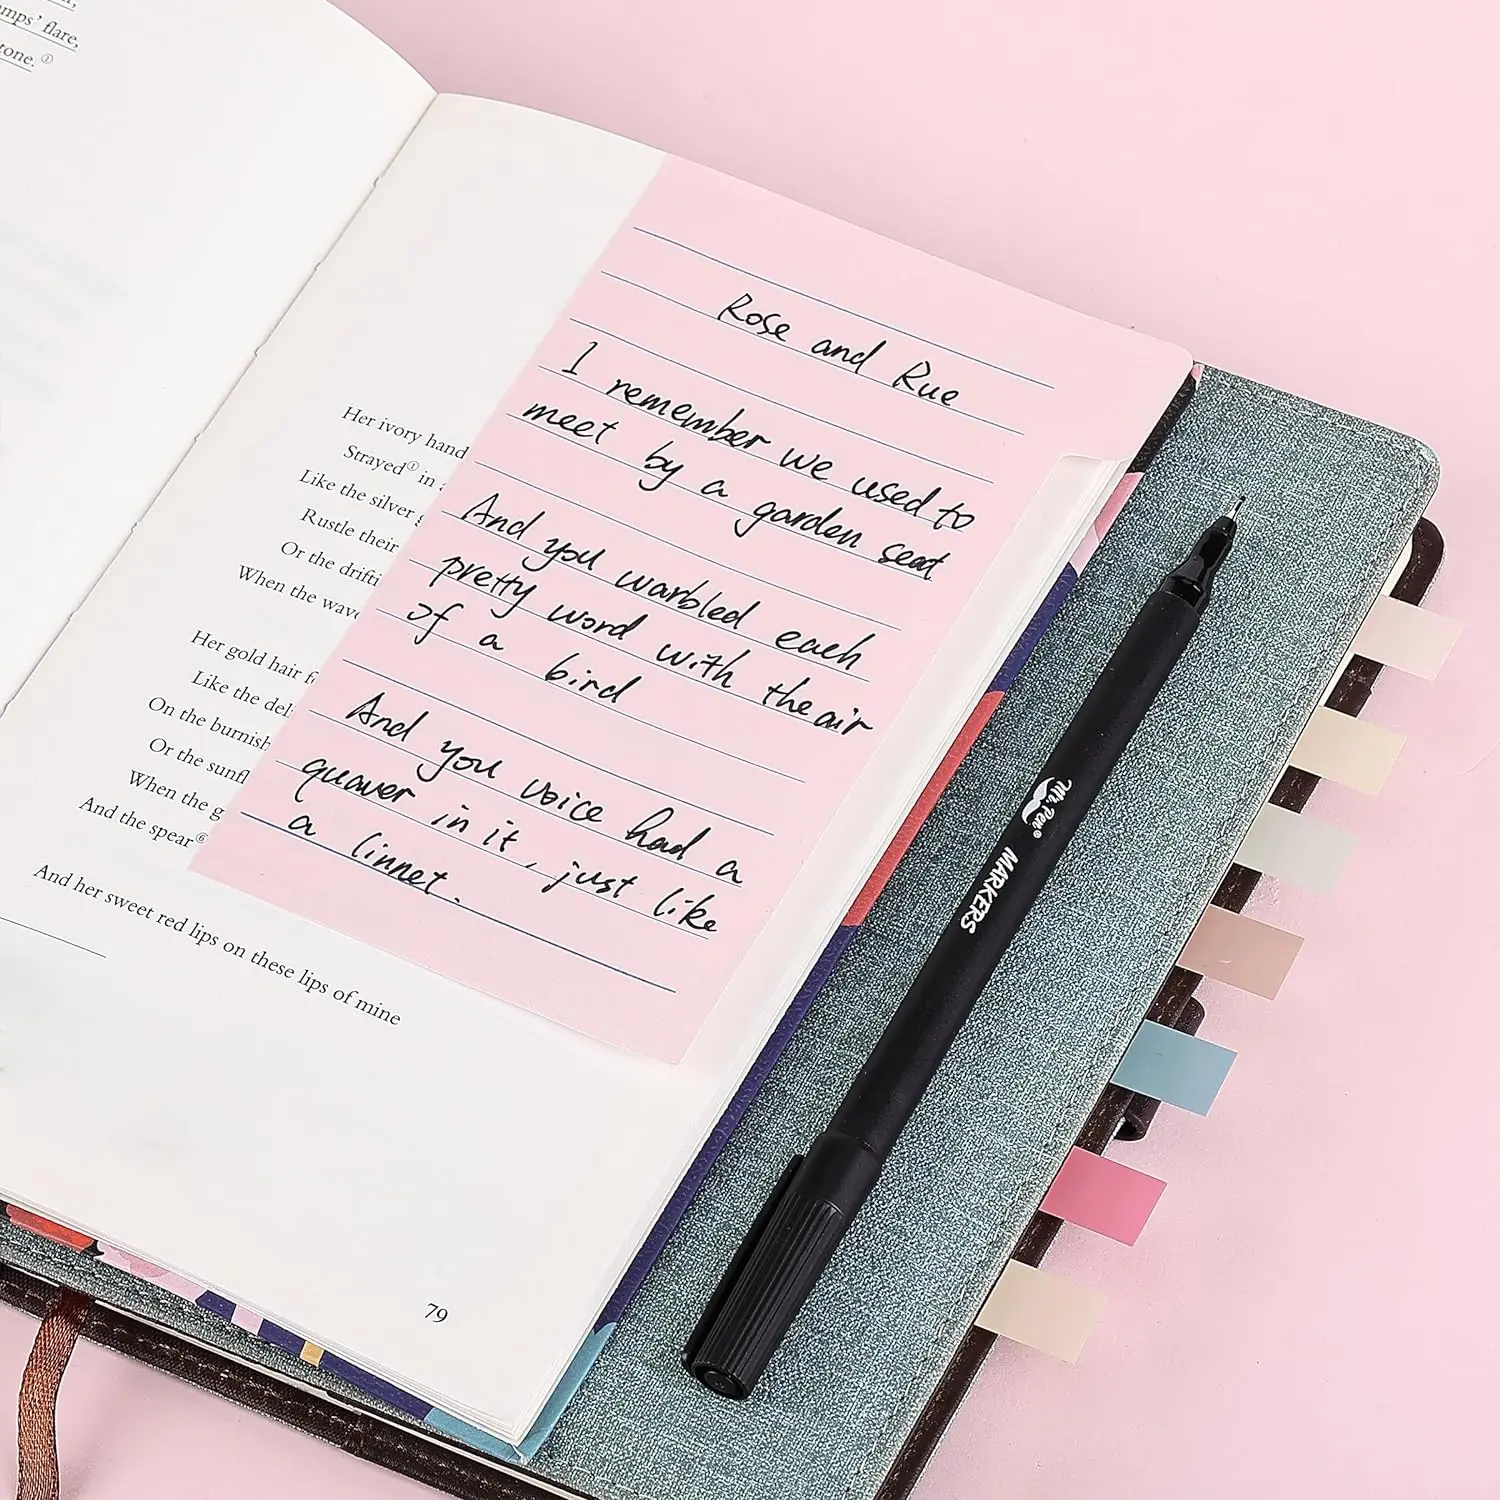 mps’ flare,
tone.①
Her ivory hand
Strayed① in
Like the silver
Rustle their
Or the drifti
When the wave
Her gold hair f
Like the del
On the burnish
Or the sunfl
When the g
And the spear⑥
And her sweet red lips on these lips of mine
79
Rose and Rue
I remember we used to
meet by a garden seat
And you warbled each
pretty word with the air
of a bird
And you voice had a
quaver in it, just like
a linnet.
Mr. Pen®
MARKERS